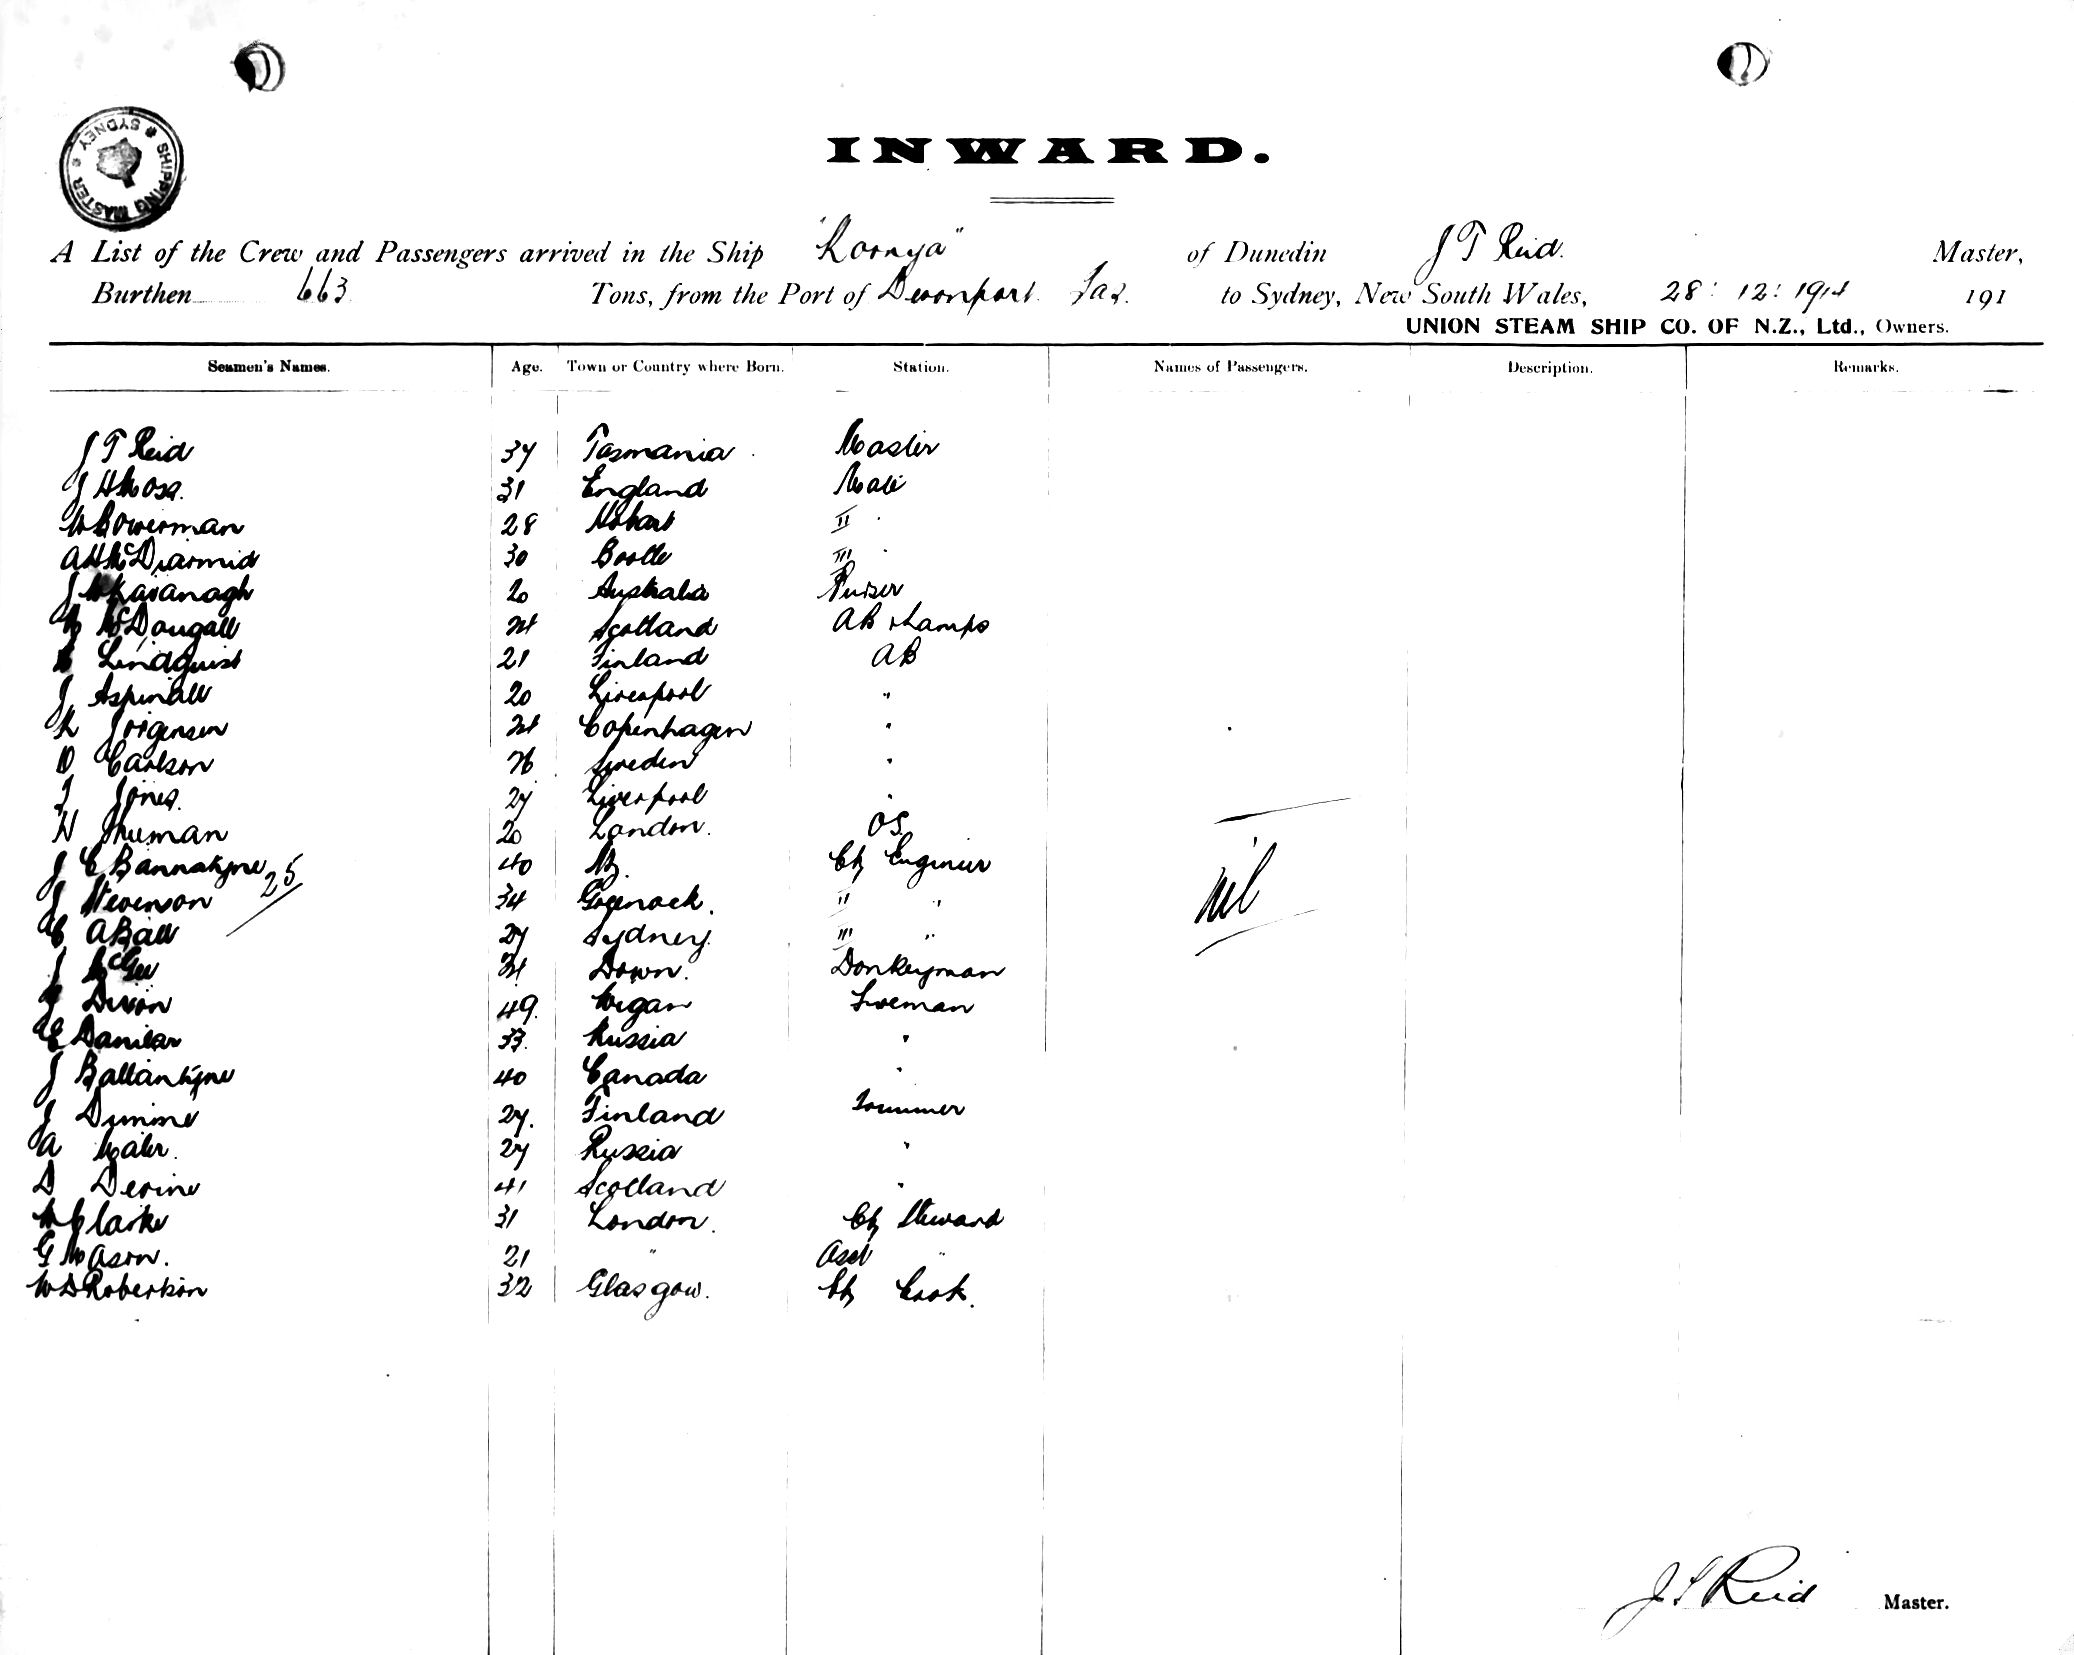 SHIPPING MASTER * SYDNEY *
INWARD.
A List of the Crew and Passengers arrived in the Ship "Koonya" of Dunedin J T Reid. Master,
Burthen 663 Tons, from the Port of Devonport Tas. to Sydney, New South Wales, 28: 12: 1914 191
UNION STEAM SHIP CO. OF N.Z., Ltd., Owners.
Seamen's Names. Age. Town or Country where Born. Station. Names of Passengers. Description. Remarks.
J T Reid 37 Tasmania Master
J H 31 England Mate
W Bowerman 28 Hobart II
A H McDiarmid 30 Bootle III
J W Kavanagh 20 Australia Purser
McDougall 24 Scotland AB & Lamps
Lindquist 21 Finland AB
J Aspinall 20 Liverpool "
K Jorgensen 24 Copenhagen "
O Carlson 26 Sweden "
T Jones. 27 Liverpool "
H Thuman 20 London. OS.
J C Bannatyne 40 Ch Engineer
25
J Stevenson 34 Greenock. II "
C A Ball 27 Sydney. III "
nil
J McGee 24 Down. Donkeyman
J Dixon 49. Wigan Fireman
C Danilar 33. Russia "
J Ballantyne 40 Canada "
J Dimme 27. Finland Trimmer
A Maler. 27 Russia "
D Devine 41 Scotland "
W Clarke 31 London. Ch Steward
G Mason. 21 " Asst "
W D Robertson 32 Glasgow. Ch Cook.
J T Reid Master.